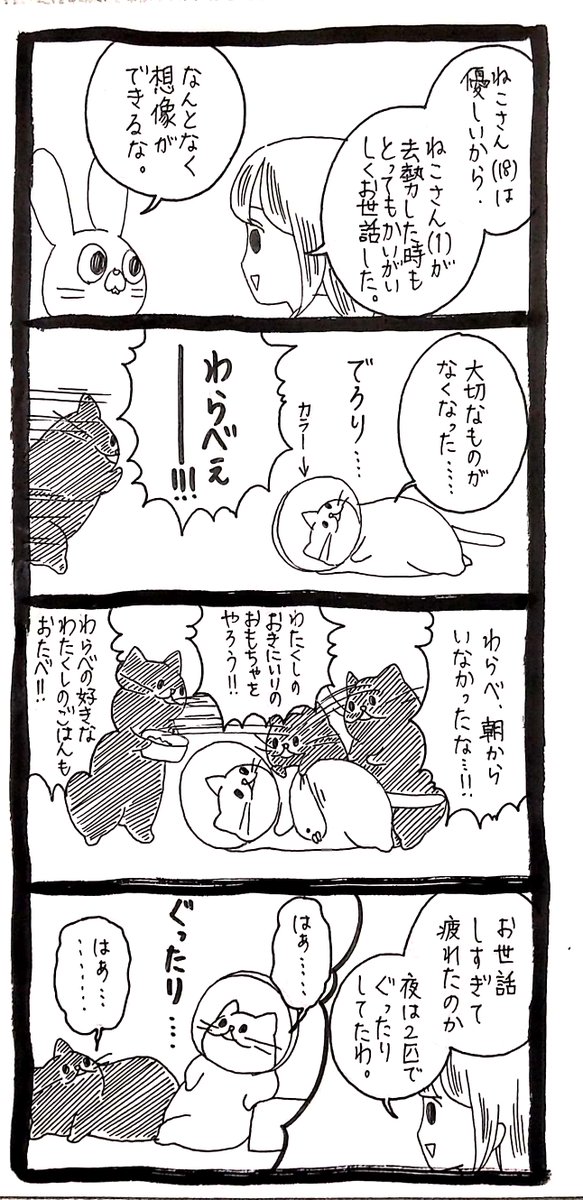 ねこさん(18)は
優しいから、
ねこさん(1)が
去勢した時も
とってもかいがい
しくお世話した。
なんとなく
想像が
できるな。
大切なものが
なくなった……
でろり…
カラー→
わらべぇ
――!!!
わらべ、朝から
いなかったな…!!
わたくしの
おきにいりの
おもちゃを
やろう!!
わらべの好きな
わたくしのごはんも
おたべ!!
お世話
しすぎて
疲れたのか
夜は2匹で
ぐったり
してたわ。
はぁ……
ぐったり……
はぁ………